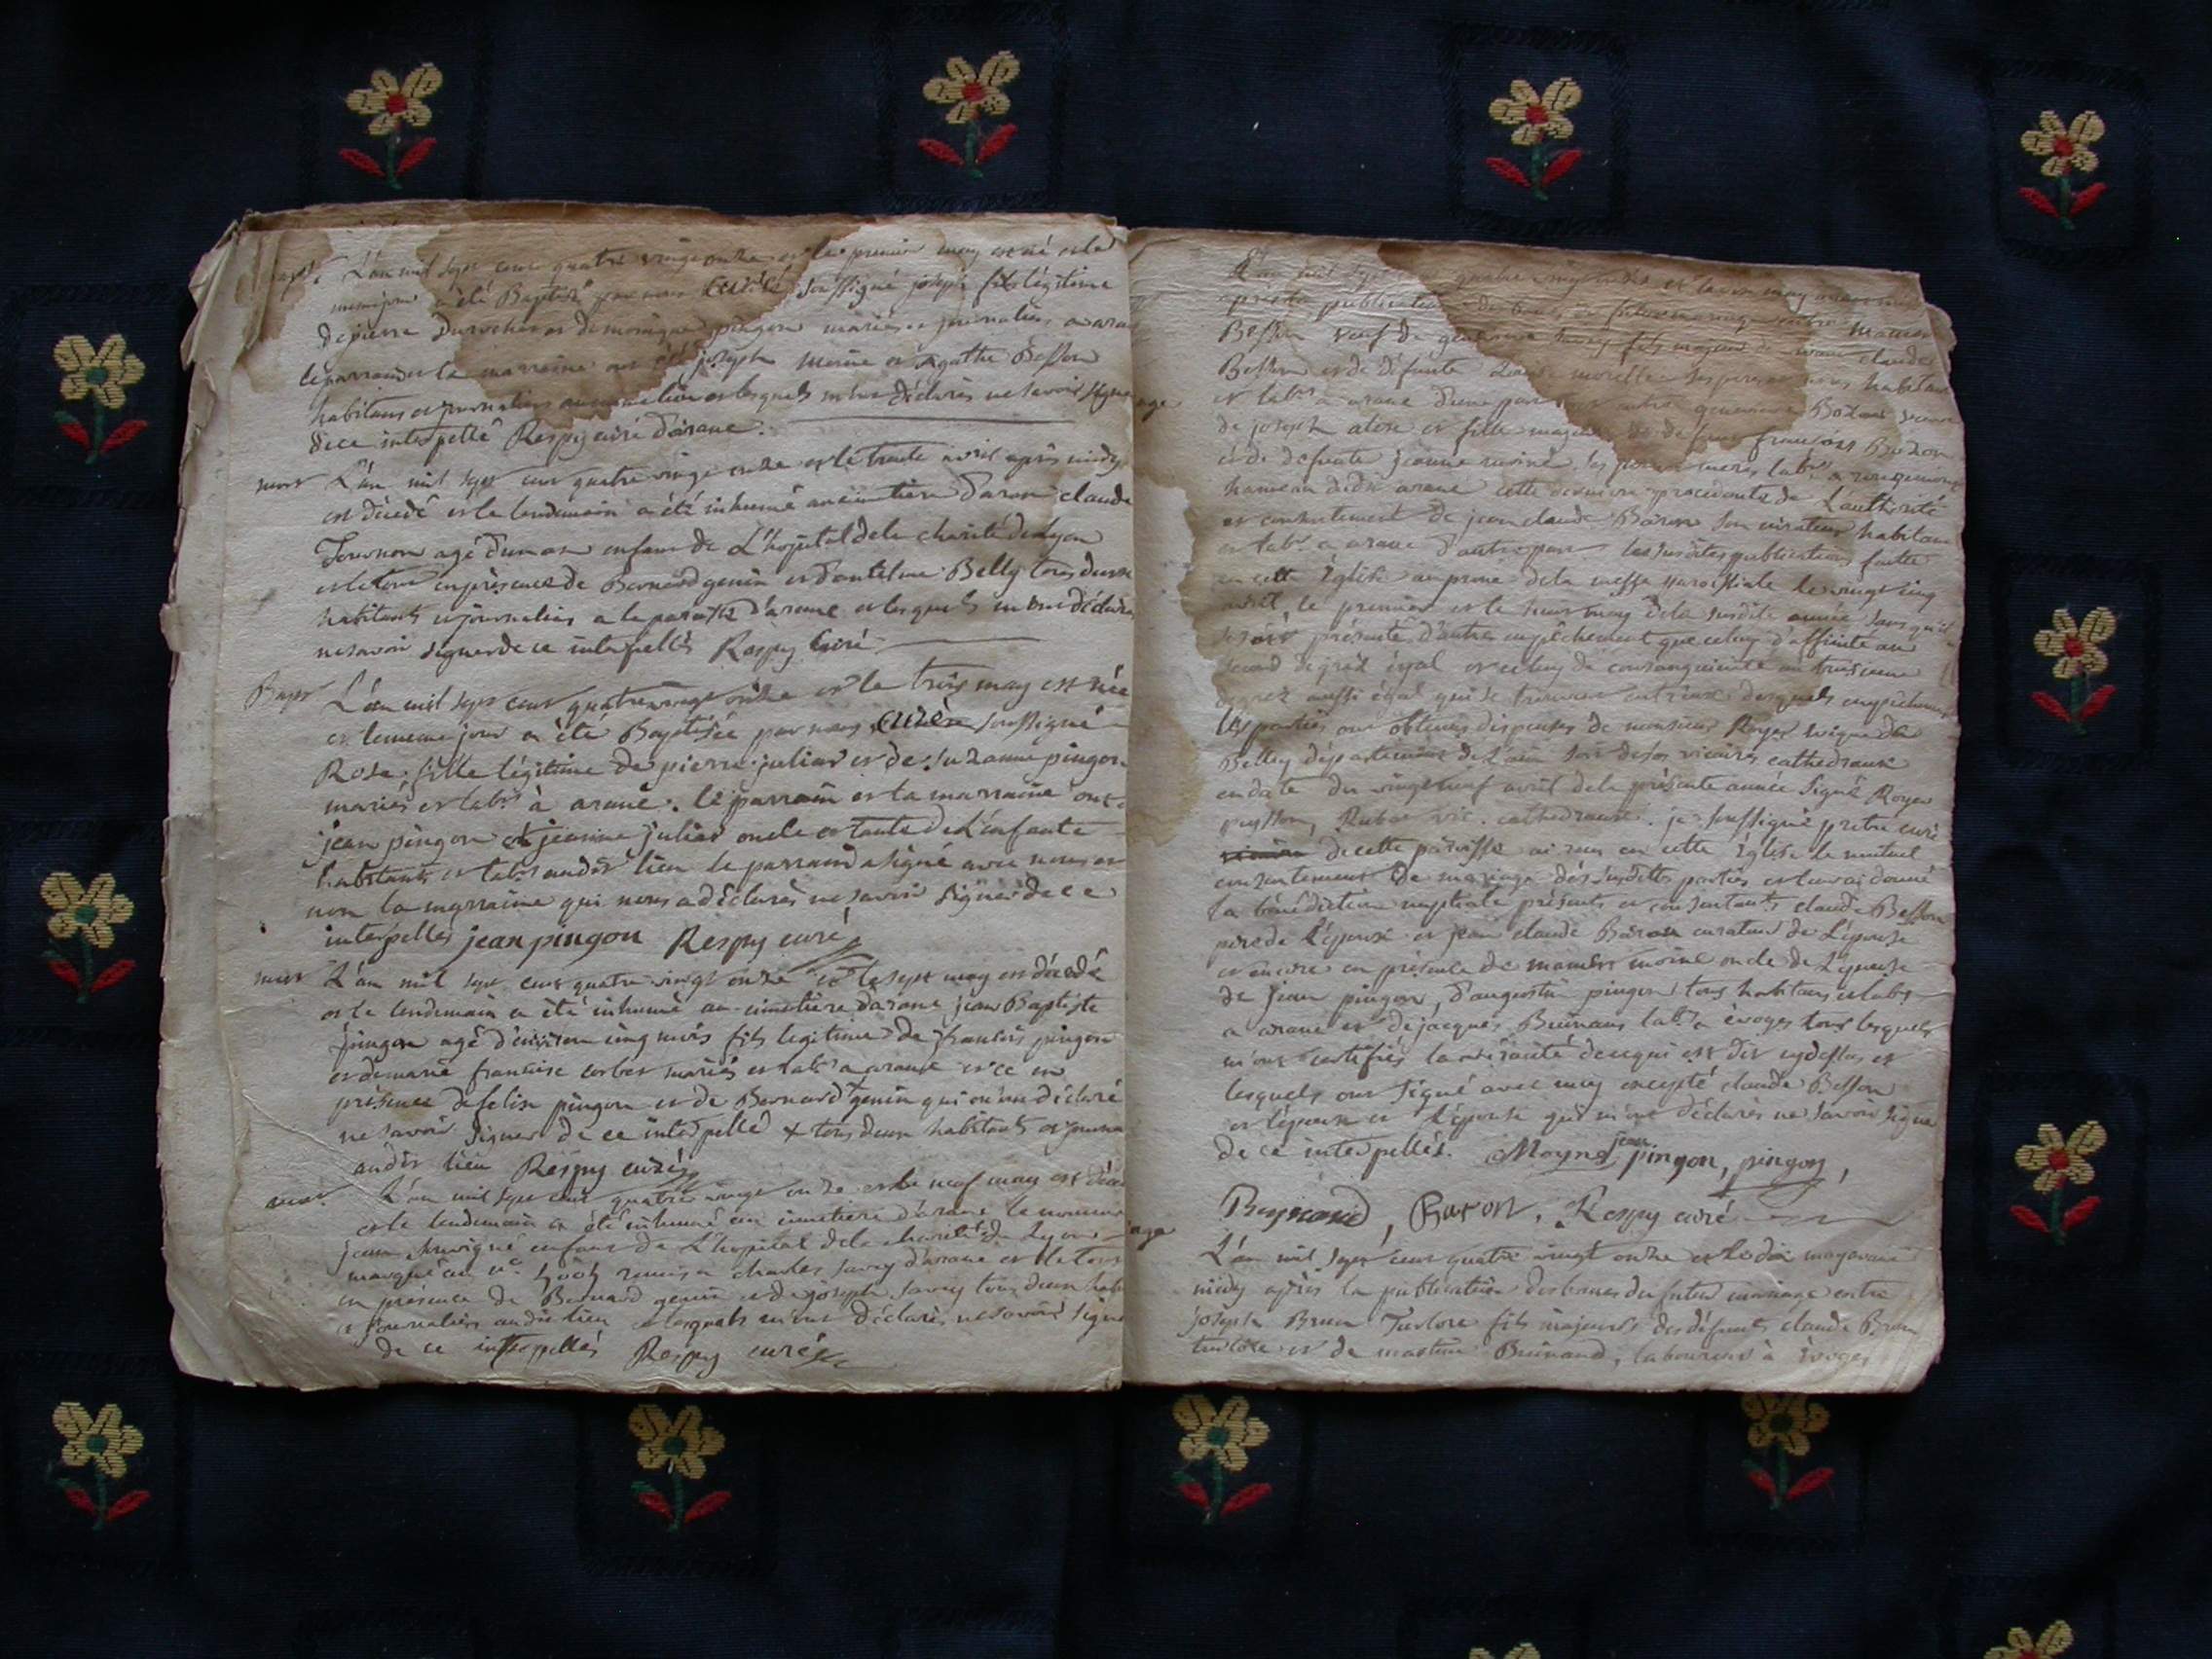 L'an mil sept cent quatre vingt onze et le premier may est né et le
meme jour a été Baptisé par nous Curé soussigné joseph fils légitime
de pierre Durochat et de monique pingon mariés et journaliers a arane
le parrain et la marraine ont été joseph moine et Agathe Besson
habitans et journaliers au meme lieu et lesquels m'ont déclarés ne savoir signer
de ce interpellé Respy curé d'arane.
mort L'an mil sept cent quatre vingt onze et le trente avril après midy
est décédé et le lendemain a été inhumé au cimetiere d'arane claude
agé d'un an enfant de L'hopital de la charité de Lyon
et le tout en présence de Bernard genin et d'antelme Belly tous deux
habitants et journaliers a la paroisse d'arane et lesquels m'ont déclaré
ne savoir signer de ce interpellés Respy Curé
Bapt L'an mil sept cent quatre vingt onze et le trois may est née
et le meme jour a été Baptisée par nous Curé soussigné
Rose fille légitime de pierre juliat et de suzanne pingon
mariés et labrs à arane. le parrain et la marraine ont été
jean pingon et jeanne juliat oncle et tante de L'enfante
habitants et labrs audit lieu le parrain a signé avec nous et
non la marraine qui nous a déclarés ne savoir signer de ce
interpellés jean pingon Respy curé
mort L'an mil sept cent quatre vingt onze et le sept may est décédé
et le lendemain a été inhumé au cimetière d'arane jean Baptiste
pingon agé d'environ cinq mois fils legitime de francois pingon
et de marie francoise corbet mariés et labrs a arane et ce en
présence de felix pingon et de Bernard genin qui m'ont déclaré
ne savoir signer de ce interpellé + tous deux habitants et journa
audit lieu Respy curé
mort L'an mil sept cent quatre vingt onze et le neuf may est décé
et le lendemain a été inhumé au cimetiere d'arane le nommé
jean enfant de L'hopital de la charité de Lyon
marqué au n° remis a charles savey d'arane et le tout
en presence de Bernard genin et de joseph savey tous deux hab
et journaliers audit lieu et lesquels m'ont déclarés ne savoir signer
de ce interpellés Respy curé
L'an mil sept cent quatre vingt onze et le may
après la publication des bans du futur mariage entre
Besson veuf de fils majeur de claude
Besson et de défunte morelle ses pere et mere habitant
et labrs a arane d'une part et autre Bozon veuve
de joseph et fille majeure de defunt françois Bozon
et de defunte jeanne ses pere et mere labrs a rougemont
hameau dudit arane cette derniere procedante de L'authorité
et consentement de jean claude Baron son curateur habitant
et labr a arane d'autre part les susdites publications faites
en cette Eglise au prone de la messe paroissiale le vingt cinq
avril, le premier et le huit may de la susdite année sans qu'il
se soit présenté d'autre empêchement que celuy d'affinité au
second degrez égal et celuy de consanguinité au troisieme
degrez aussi égal qui se trouvent entreux desquels empêchement
les parties ont obtenus dispenses de monsieur Royer évêque de
Belley département de L'ain soit de ses vicaires cathedraux
en date du vingt neuf avril de la présente année signé Royer
vic. cathedraux. je soussigné pretre curé
de cette paroisse ai reçu en cette Eglise le mutuel
consentement de mariage des susdittes parties et leur ai donné
la bénédiction nuptiale présents et consentants claude Besson
pere de L'époux et jean claude Baron curateur de L'épouse
et encore en présence de mamert moine oncle de L'épouse
de jean pingon, d'augustin pingon tous habitans et labrs
a arane et de jacques Buinand labr a évoges tous lesquels
m'ont certifiés la vérité de ce qui est dit cy dessus et
lesquels ont signé avec moy excepté claude Besson
et l'époux et L'épouse qui m'ont déclarés ne savoir signer
de ce interpellés. Moyne jean pingon, pingon,
Buynand, Baron, Respy curé
L'an mil sept cent quatre vingt onze et le dix may avant
midy après la publication des bans du futur mariage entre
joseph Brun Turlore fils majeur des défunts claude Brun
turlore et de martine Buinand, laboureurs à évoges